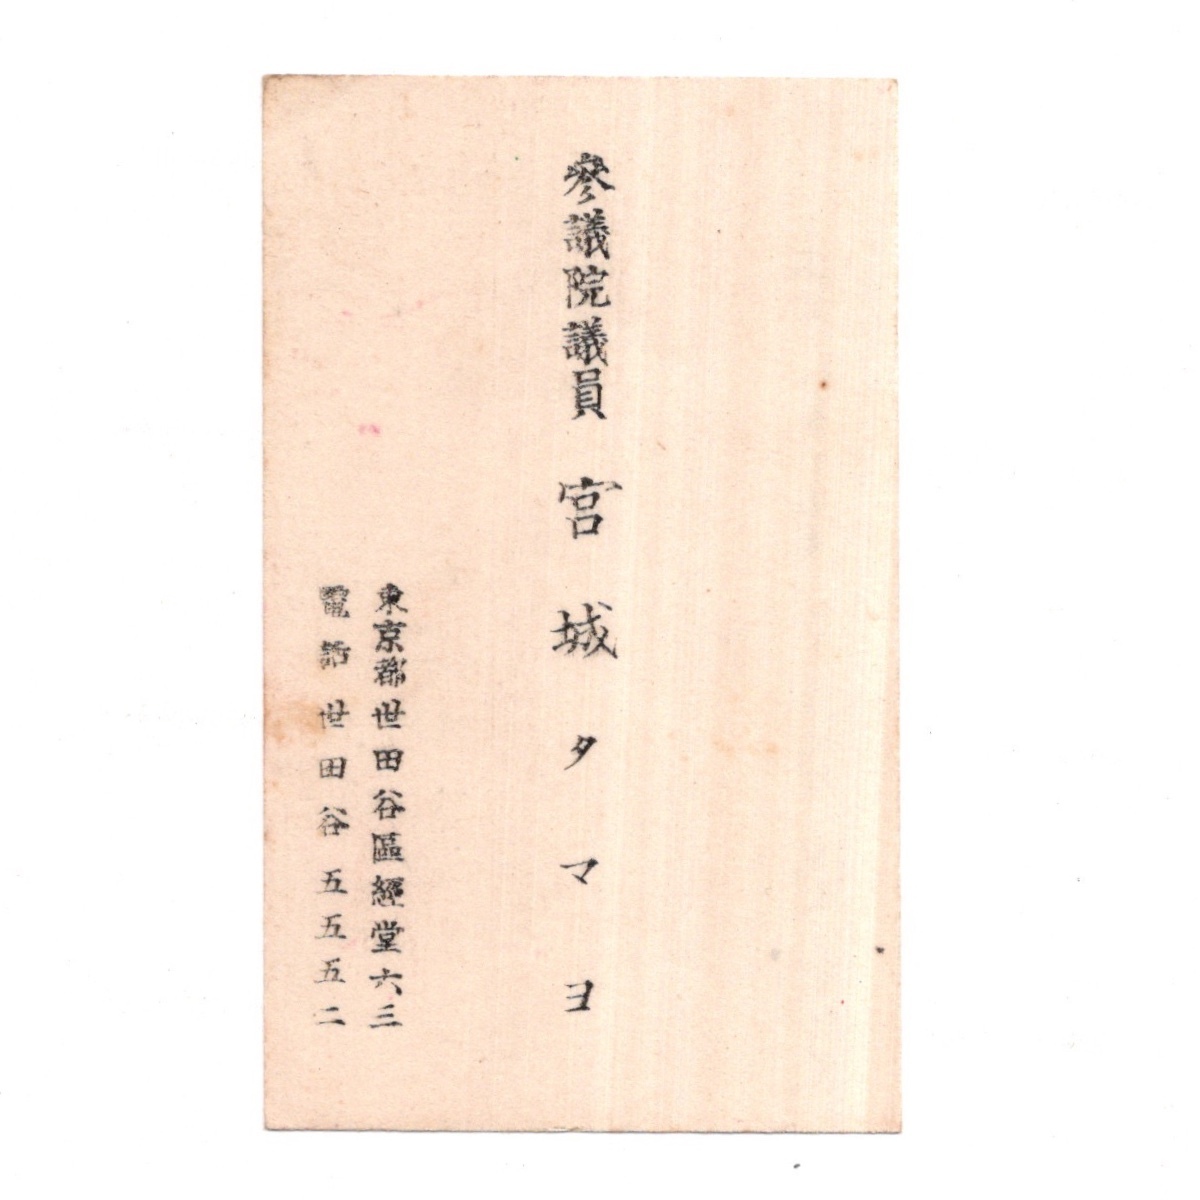 參議院議員 宮城タマヨ
東京都世田谷區經堂六三
電話世田谷五五五二